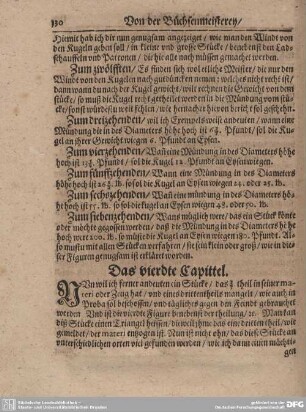 130 Von der Büchsenmeisterey/
Hiemit hab ich dir nun genugsam angezeiget / wie man den Windt von
den Kugeln geben soll / in kleine vnd grosse Stücke / benebenst den Lad-
schauffeln vnd Patronen / die hie alle nach müssen gemachet werden.
Zum zwölfften / Es finden sich wol etliche Meister / die nur den
Windt von den Kugeln nach gutdüncken nemen / welches nicht recht ist /
dann wann du nach der Kugel gewicht / wilt rechnen die Gewicht von dem
stücke / so muß die Kugel recht getheilet werden in die Mündung vom stü-
cke / sonst würdestu weit fehlen / wie hernacher hievon bericht sol geschehen.
Zum dreizehenden / wil ich Exempels weiß andeuten / wann eine
Mündung die in des Diameters höhe hoch ist Pfundt / sol die Ku-
gel an ihrer Gewicht wiegen 6. Pfundt an Eysen.
Zum vierzehenden / Wañ eine Mündung in des Diameters höhe
hoch ist Pfundt / sol die Kugel 12. Pfundt an Eysen wiegen.
Zum fünffzehenden / Wann eine Mündung in des Diameters
höhe hoch ist so sol die Kugel an Eysen wiegen 24. oder 25. lb.
Zum sechszehenden / Wañ eine mündung in des Diameters hö-
he hoch ist lb. so sol die Kugel an Eysen wiegen 48. oder 50. lb.
Zum siebenzehenden / Wans müglich were / das ein Stück könte
oder möchte gegossen werden / daß die Mündung in des Diameters höhe
hoch were 200. lb. so müste die Kugel an Eysen wiegen 180. Pfundt. Al-
so mustu mit aller Stücken verfahren / sie sein klein oder groß / wie in die-
ser Figuren genugsam ist erkläret worden.
Das vierdte Capittel.
NVn wil ich ferner andeuten ein Stücke / das theil in seiner ma-
teri oder Zeug hat / vnd eines dritten theils mangelt / wie auch in
Proba sol beschossen / vnd täglichs gegen den Feindt gebrauchet
werden Vnd ist die vierdte Figur benebenst der theilung / Man kan
diß Stücke einen Triangel heissen / dieweil ihme das eine dritten theil / wie
gemeldet / der materi entzogen ist. Nun ist nicht ohn / das diese Stücke an
vnterschiedlichen orten viel gefunden werden / wie ich dann euch meinen